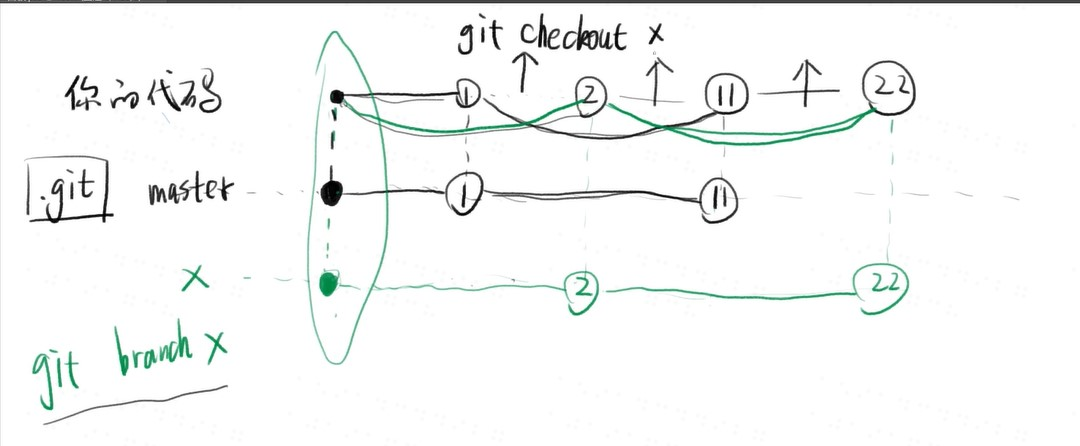 git checkout x
你的代码 1 2 11 22
.git master 1 11
x 2 22
git branch x